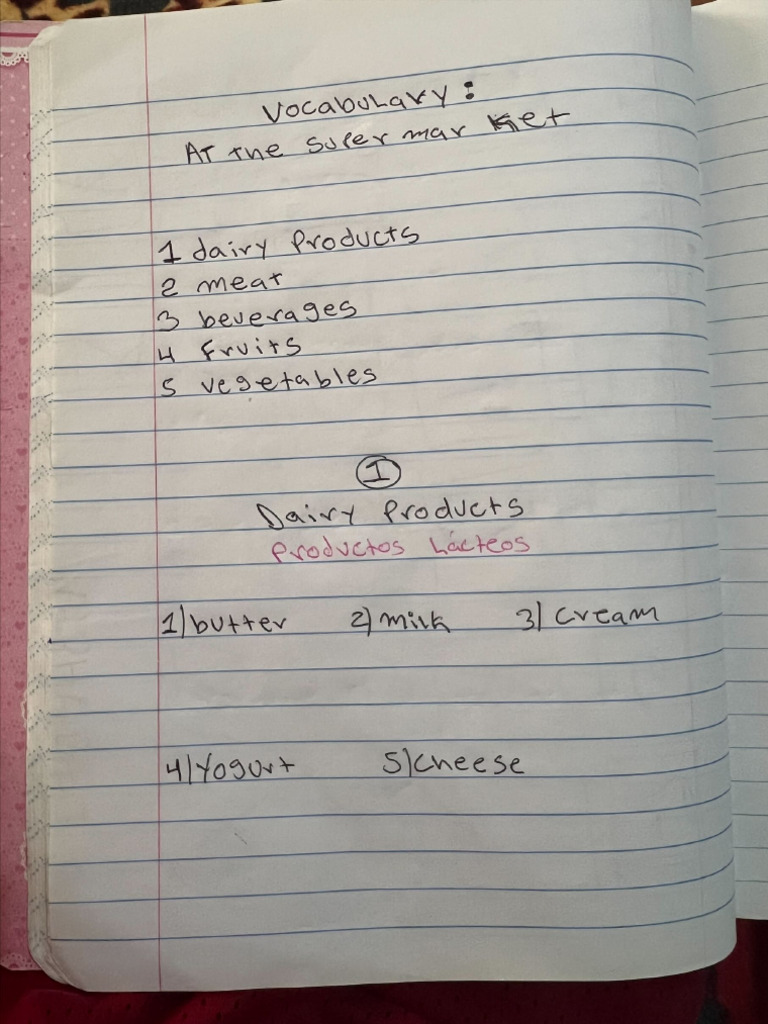 Vocabulary:
At the super mar ket
1 dairy products
2 meat
3 beverages
4 fruits
5 vegetables
1
Dairy Products
Productos Lácteos
1) butter 2) milk 3) cream
4) Yogurt 5) cheese